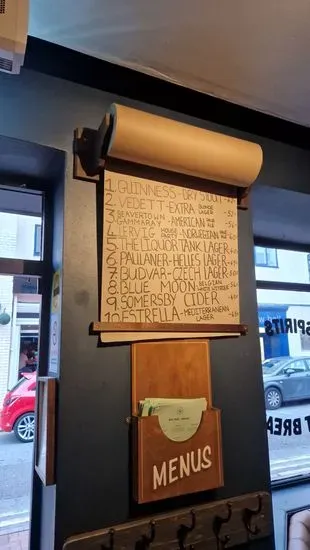 1. GUINNESS - DRY STOUT
2. VEDETT - EXTRA BLONDE LAGER
3. BEAVERTOWN GAMMARAY - AMERICAN PALE ALE
4. LERVIG HOUSE PARTY - NORWEGIAN
5. THE LIQUOR TANK LAGER
6. PAULANER - HELLES LAGER
7. BUDVAR - CZECH LAGER
8. BLUE MOON - BELGIAN
9. SOMERSBY CIDER
10. ESTRELLA - MEDITERRANEAN LAGER
MENUS
SPIRITS
T BREA